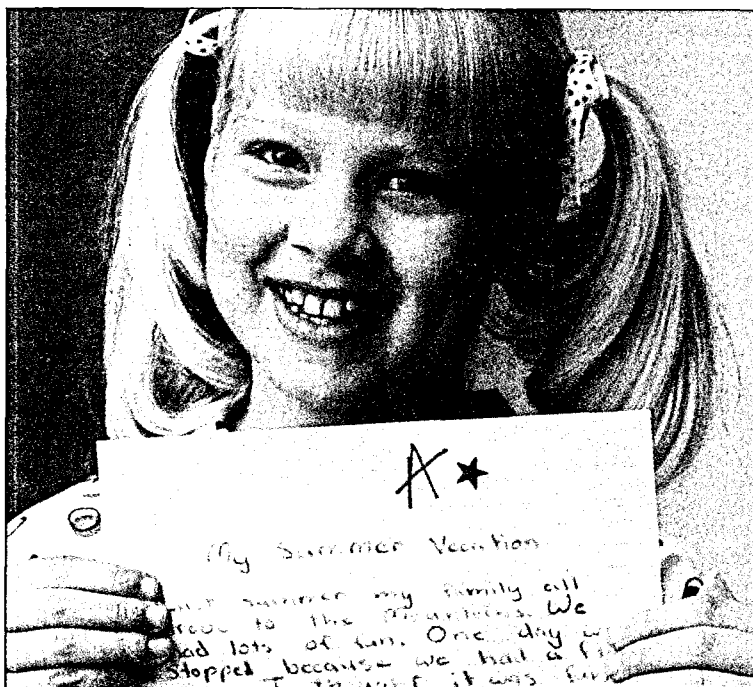 A
My Summer Vacation
summer my family all
to the Mountains. We
had lots of fun. One day
Stopped because we had a
I thought it was